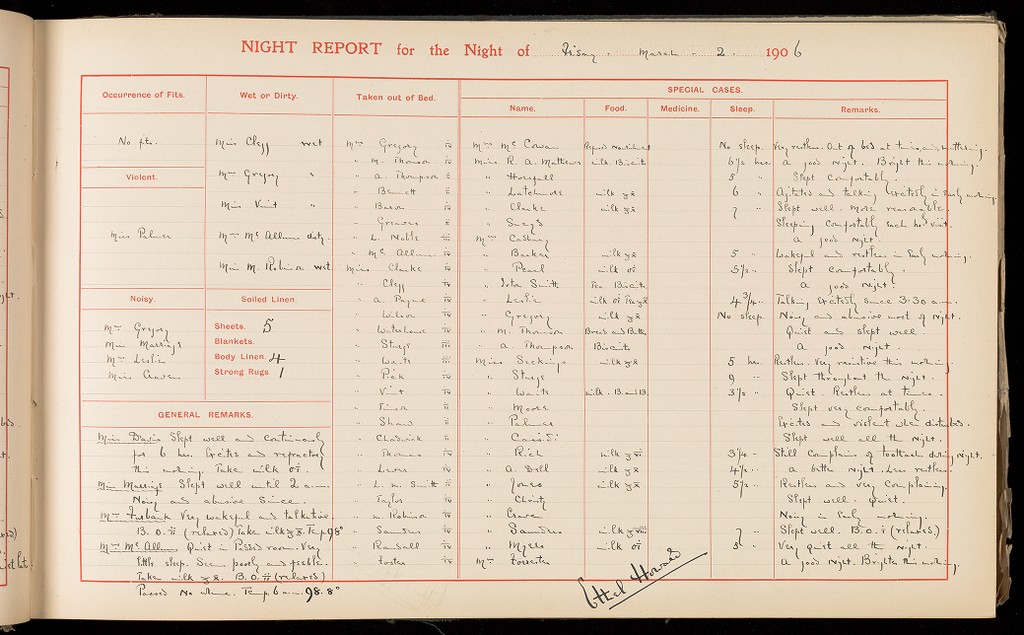 NIGHT REPORT for the Night of Friday March 2. 1906
Occurrence of Fits.
No fits.
Violent.
Miss Palmer
Noisy.
Mrs Gregory
Miss Marrings
Mrs Leslie
Miss Craven
Wet or Dirty.
Miss Clegg wet
Mrs Gregory "
Miss Vint "
Mrs McAllum dirty.
Miss M. Robinson wet
Soiled Linen.
Sheets. 5
Blankets.
Body Linen. 4
Strong Rugs. 1
Taken out of Bed.
Mrs Gregory
" M. Thomson
" A. Thompson
" Bennett
" Bacon
" Greaves
" L. Noble
" McAllum
Miss Clarke
" Clegg
" A. Payne
" Wilson
" Waterhouse
" Sturge
" Waite
" Peek
" Vint
" Timon
" Shaw
" Chadwick
" Thomas
" Lewis
" L. M. Smith
" Taylor
" M. Robinson
" Sanders
" Randall
" Foster
SPECIAL CASES.
Name. Food. Medicine. Sleep. Remarks.
Mrs McCowan No sleep. Very restless. Out of bed at times, and muttering.
Miss R. A. Mathews milk. Biscuits 6½ hrs. A good night. Bright this morning.
" Horsfall 5 " Slept comfortably.
" Latchmore milk 6 " Agitated and talking excitedly in early morning.
" Clarke milk 7 " Slept well. More reasonable.
" Sleeping comfortably each hrs visit.
Mrs Cadbury A good night.
" Barker milk 5 " Wakeful and restless in early morning.
" Pearl milk 5½ " Slept comfortably.
" Iota Smith Tea Biscuits A good night.
" Leslie milk 4¾ " Talking excitedly since 3.30 a.m.
" Gregory milk No sleep. Noisy and abusive most of night.
" M. Thomson Bread and Butter Quiet and slept well.
" A. Thompson Biscuits A good night.
Miss Seekings milk 5 hrs. Restless. Very resistive this morning.
" Sturge 9 " Slept throughout the night.
" Waite milk. B. and B. 3½ " Quiet. Restless at times.
" Moore Slept very comfortably.
" Palmer Excited and violent when disturbed.
" Slept well all the night.
" Rich milk 3¾ " Still complains of toothache during night.
" A. Dell milk 4½ " A better night. Less restless.
" Jones milk 5½ " Restless and very complaining.
" Christy Slept well. Quiet.
" Craven Noisy in early morning.
" Sanders milk 7 " Slept well. B.O. (relaxed)
" Myers milk 5 " Very quiet all the night.
Mrs Forrester A good night. Brighter this morning.
GENERAL REMARKS.
Miss Davis Slept well and continuously
for 6 hrs. Excited and refractory
this morning. Taken milk
Miss Marrings Slept well until 2 a.m.
Noisy and abusive since.
Mrs Firbank Very wakeful and talkative.
B.O. (relaxed) Taken milk. Temp 98°
Mrs McAllum Quiet in Padded room. Very
little sleep. Seems poorly and feeble.
Taken milk B.O. (relaxed)
Passed no urine. Temp 6 a.m. 98.8°
Ethel Howard